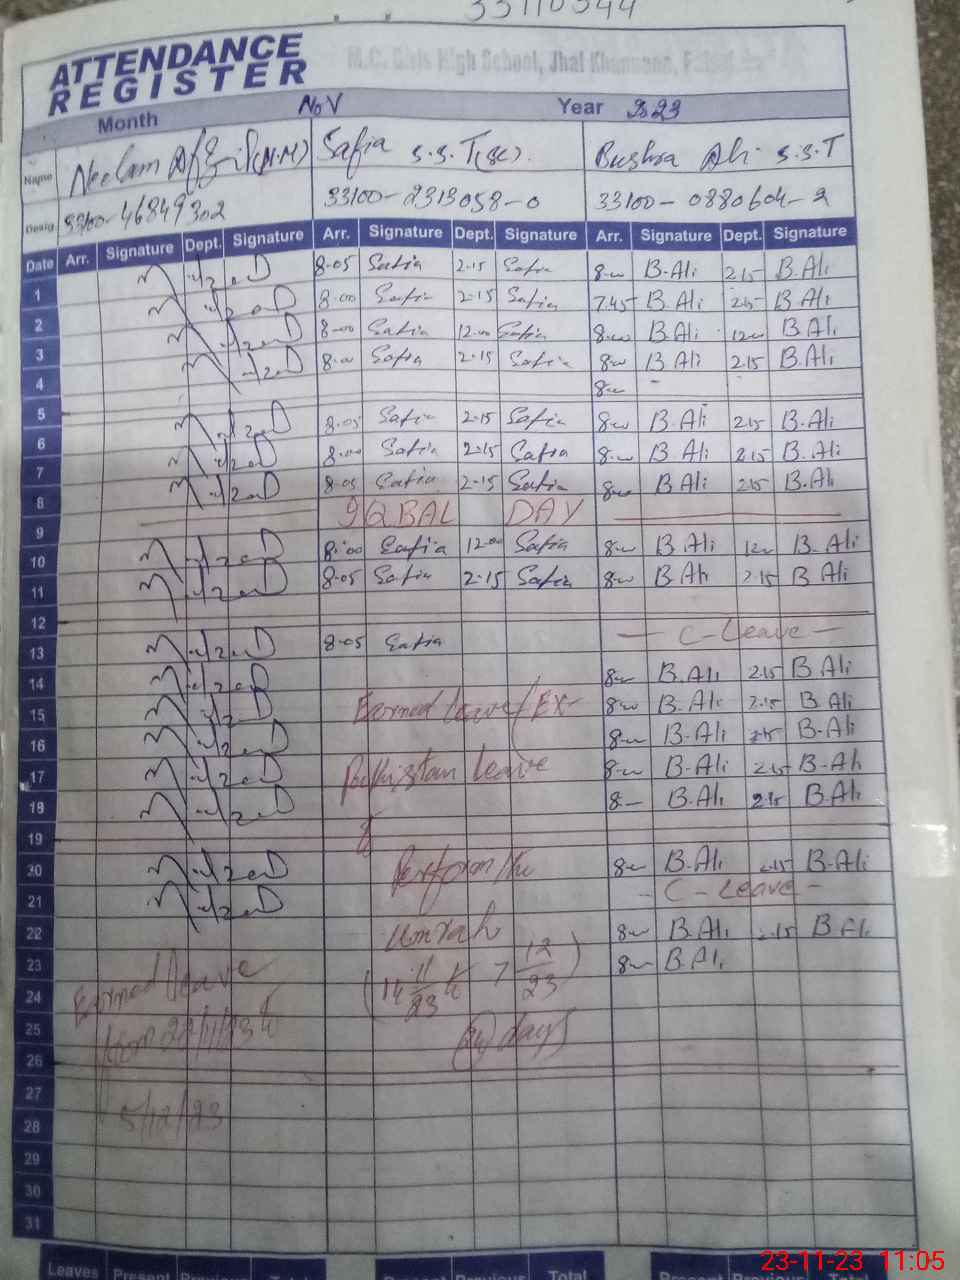 33110344
ATTENDANCE
REGISTER
M.C. Girls High School, Jhal Khanuana,
Month Nov Year 2023
Name Neelam (H.M) Safia S.S.T(SC). Bushra Ali S.S.T
Desig. 33100-46849302 33100-2313058-0 33100-0880604-2
Date Arr. Signature Dept. Signature Arr. Signature Dept. Signature Arr. Signature Dept. Signature
8-05 Safia 2-15 Safia 8-00 B.Ali 2.15 B.Ali
1 8-00 Safia 2-15 Safia 7.45 B.Ali 2.15 B.Ali
2 8-00 Safia 12-00 Safia 8-00 B.Ali 12.00 B.Ali
3 8-00 Safia 2-15 Safia 8-00 B.Ali 2.15 B.Ali
4 8-00 -
5 8-05 Safia 2-15 Safia 8-00 B.Ali 2.15 B.Ali
6 8-00 Safia 2-15 Safia 8-00 B.Ali 2.15 B.Ali
7 8-05 Safia 2-15 Safia 8-00 B.Ali 2.15 B.Ali
8 IQBAL DAY
9 8-00 Safia 12-00 Safia 8-00 B.Ali 12.00 B.Ali
10 8-05 Safia 2-15 Safia 8-00 B.Ali 2.15 B.Ali
11
12 - C-Leave -
13 8-05 Safia
14 8-00 B.Ali 2.15 B.Ali
15 Earned leave/EX- 8-00 B.Ali 2.15 B.Ali
16 8-00 B.Ali 2.15 B.Ali
17 Pakistan leave 8-00 B.Ali 2.15 B.Ali
18 8- B.Ali 2.15 B.Ali
19
20 Perform the 8-00 B.Ali 2.15 B.Ali
21 - C-Leave -
22 Umrah 8-00 B.Ali 2.15 B.Ali
23 Earned leave (14 11/23 to 7 12/23) 8-00 B.Ali
24
25 from 22/11/23 to (24) days
26
27 5/12/23
28
29
30
31
Leaves Present Previous Total Present Previous Total Present Previous Total
23-11-23 11:05